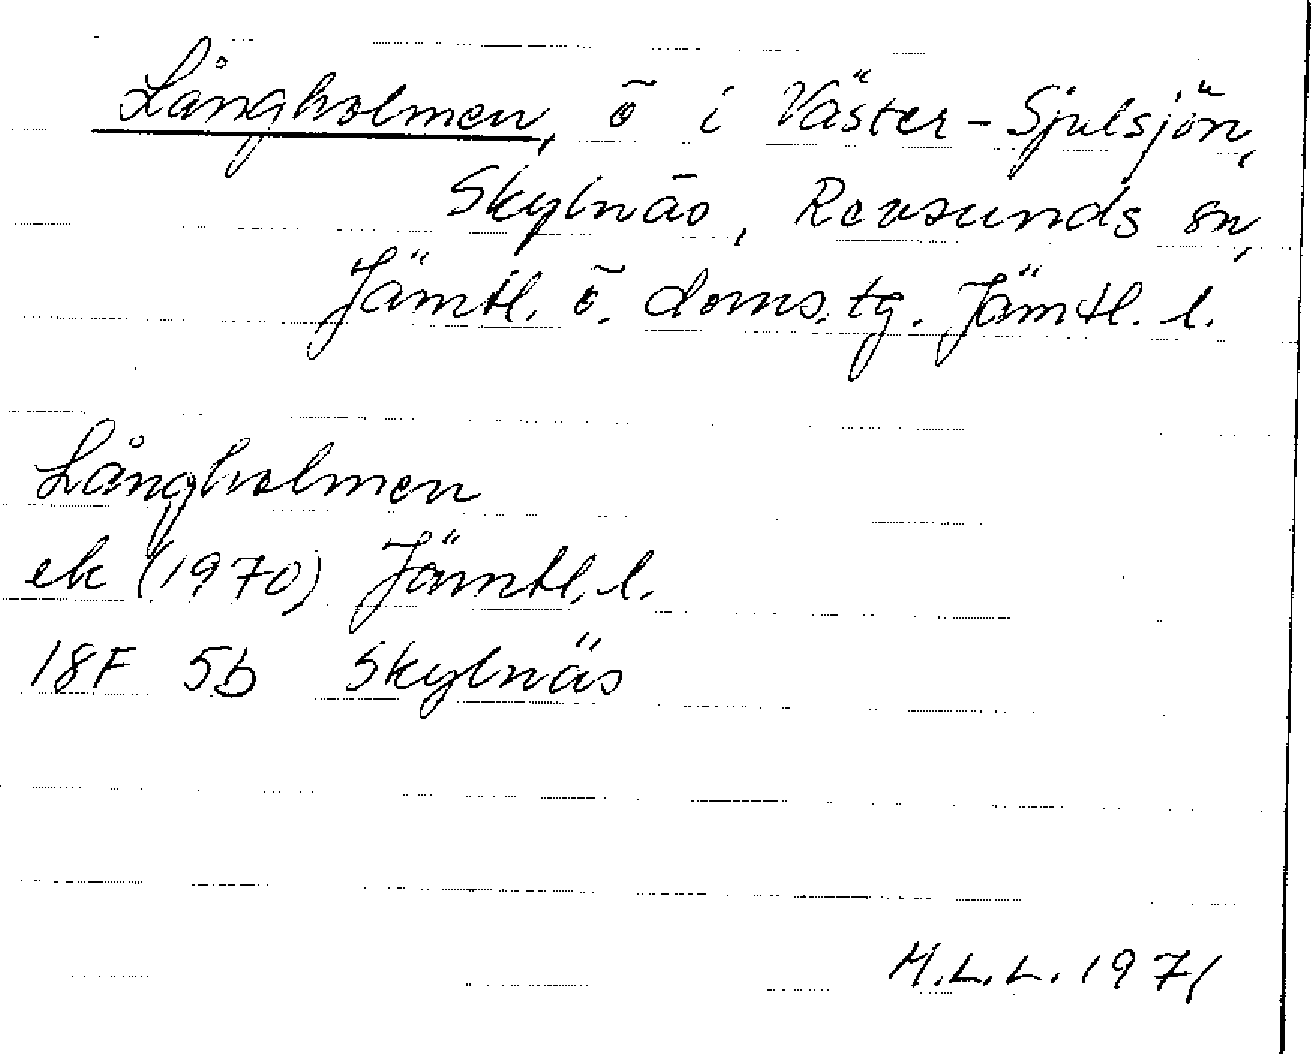 Långholmen, ö i Väster-Sjulsjön,
Skylnäs, Revsunds sn,
Jämtl. ö. doms. tg. Jämtl. l.
Långholmen
ek (1970) Jämtl. l.
18F 5b Skylnäs
M.L.L. 1971